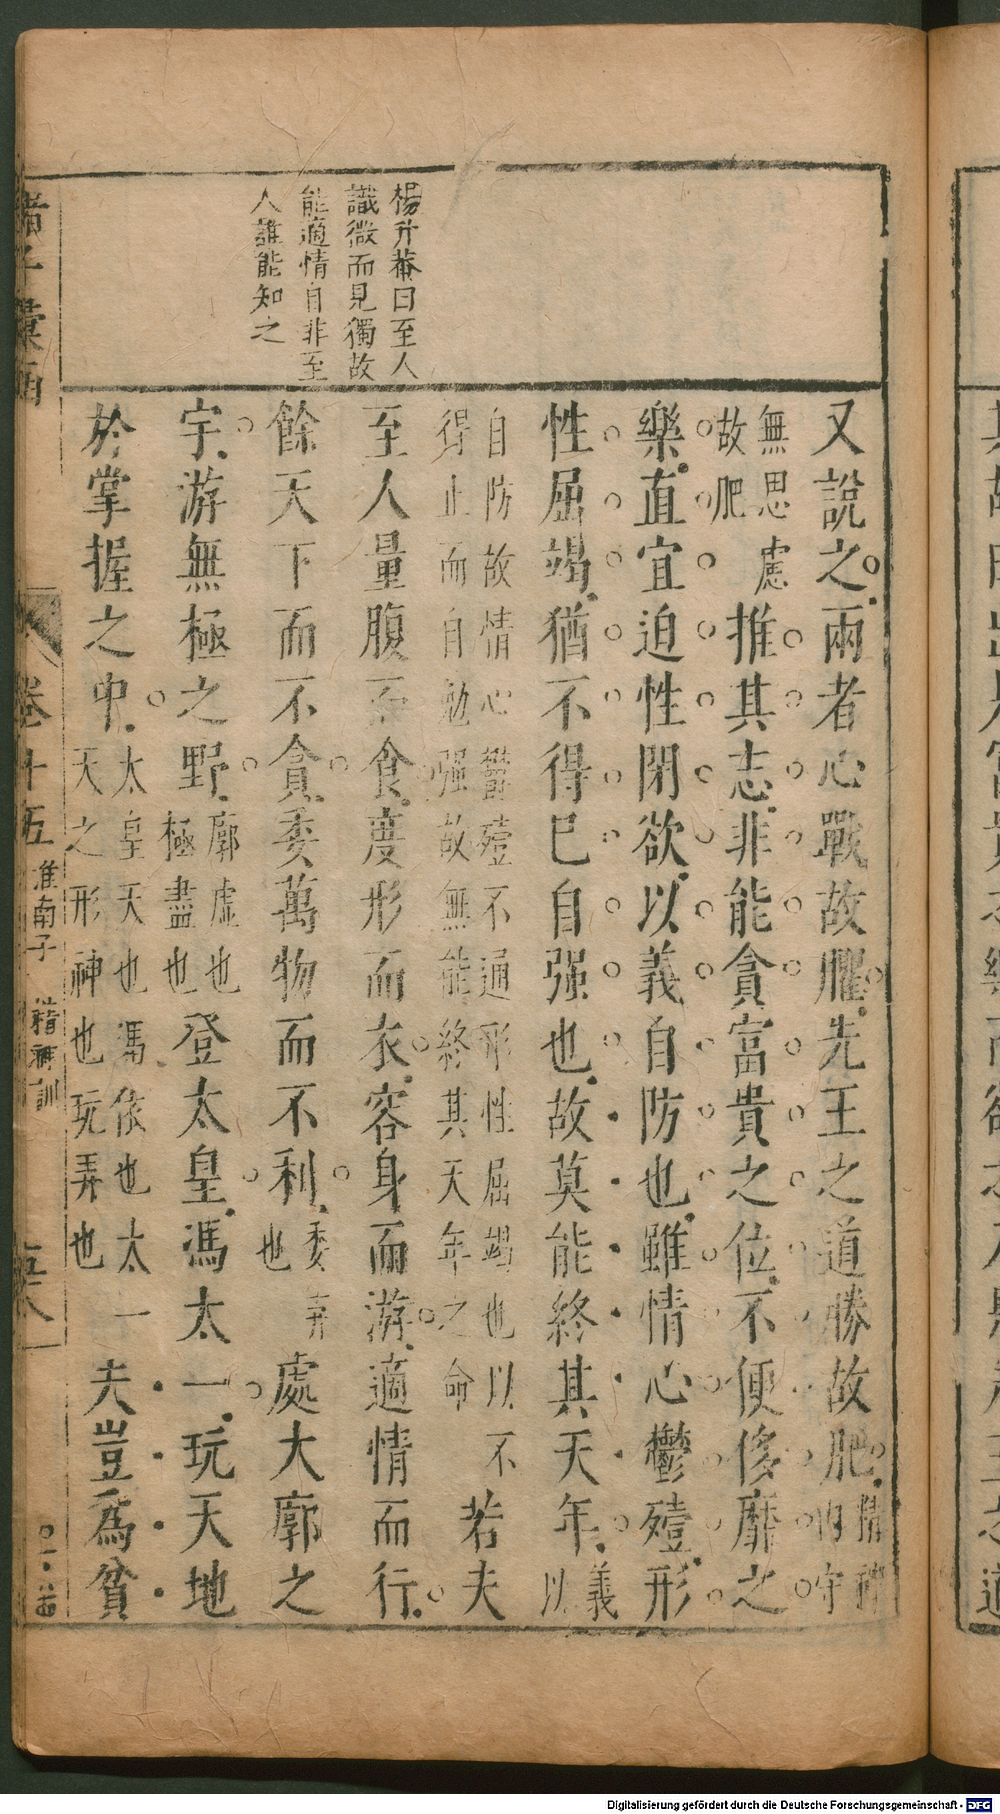 楊升菴曰至人
識微而見獨故
能適情自非至
人誰能知之
又說之兩者心戰故臞先王之道勝故肥精神內守
無思慮故肥推其志非能貪富貴之位不便侈靡之
樂直宜迫性閉欲以義自防也雖情心鬱殪形
性屈竭猶不得已自强也故莫能終其天年義以
自防故情心鬱殪不通形性屈竭也以不得止而自勉强故無能終其天年之命若夫
至人量腹而食度形而衣容身而游適情而行
餘天下而不貪委萬物而不利委弃也處大廓之
宇游無極之野廓虛也極盡也登太皇馮太一玩天地
於掌握之中太皇天也馮依也太一天之形神也玩弄也夫豈爲貧
諸子彙函
卷十五
淮南子
精神訓
Digitalisierung gefördert durch die Deutsche Forschungsgemeinschaft - DFG